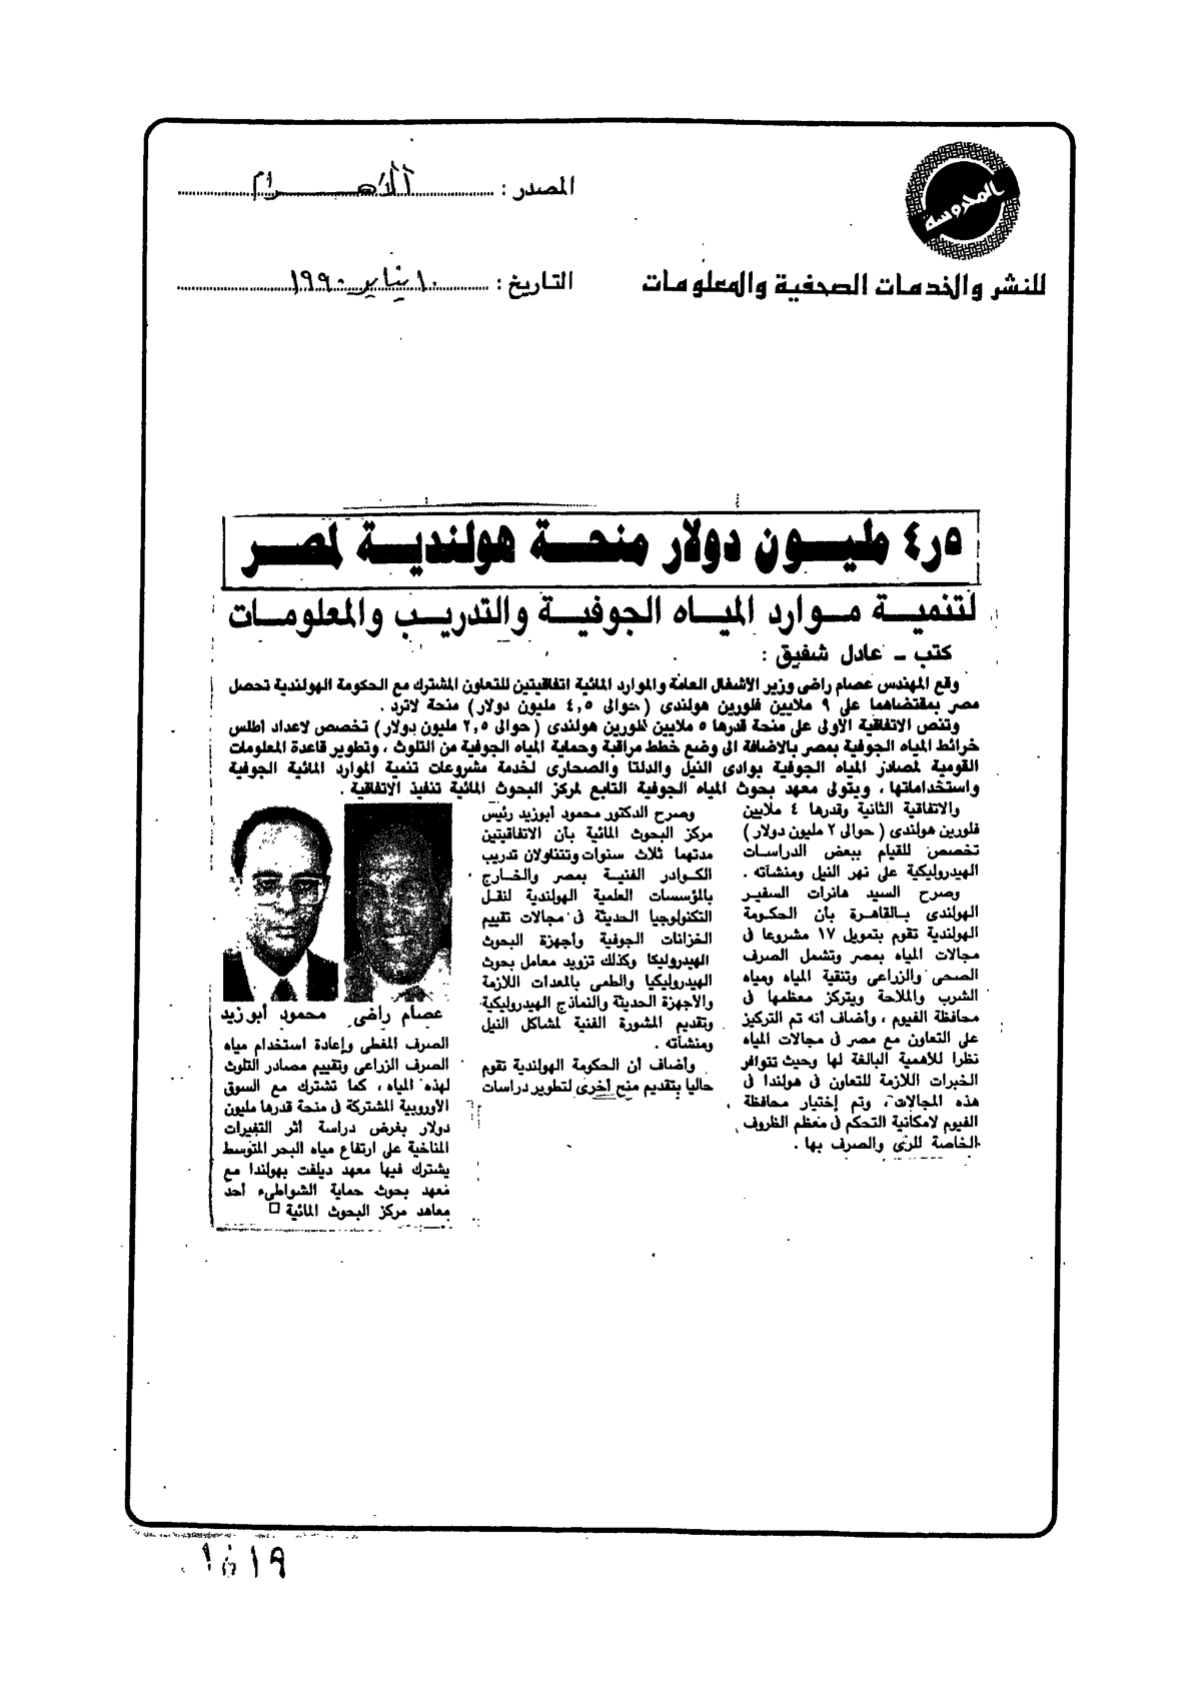 المحروسة
للنشر والخدمات الصحفية والمعلومات
المصدر : الأهرام
التاريخ : ١٠ يناير ١٩٩٠
٤٫٥ مليون دولار منحة هولندية لمصر
لتنمية موارد المياه الجوفية والتدريب والمعلومات
كتب ـ عادل شفيق :
وقع المهندس عصام راضى وزير الاشغال العامة والموارد المائية اتفاقيتين للتعاون المشترك مع الحكومة الهولندية تحصل
مصر بمقتضاهما على ٩ ملايين فلورين هولندى ( حوالى ٤,٥ مليون دولار ) منحة لاترد .
وتنص الاتفاقية الأولى على منحة قدرها ٥ ملايين فلورين هولندى ( حوالى ٢,٥ مليون دولار ) تخصص لاعداد اطلس
خرائط المياه الجوفية بمصر بالاضافة الى وضع خطط مراقبة وحماية المياه الجوفية من التلوث ، وتطوير قاعدة المعلومات
القومية لمصادر المياه الجوفية بوادى النيل والدلتا والصحارى لخدمة مشروعات تنمية الموارد المائية الجوفية
واستخداماتها ، ويتولى معهد بحوث المياه الجوفية التابع لمركز البحوث المائية تنفيذ الاتفاقية .
والاتفاقية الثانية وقدرها ٤ ملايين
فلورين هولندى ( حوالى ٢ مليون دولار )
تخصص للقيام ببعض الدراسات
الهيدروليكية على نهر النيل ومنشآته .
وصرح السيد هانرات السفير
الهولندى بالقاهرة بأن الحكومة
الهولندية تقوم بتمويل ١٧ مشروعا فى
مجالات المياه بمصر وتشمل الصرف
الصحى والزراعى وتنقية المياه ومياه
الشرب والملاحة ويتركز معظمها فى
محافظة الفيوم ، وأضاف أنه تم التركيز
على التعاون مع مصر فى مجالات المياه
نظرا للأهمية البالغة لها وحيث تتوافر
الخبرات اللازمة للتعاون فى هولندا فى
هذه المجالات ، وتم إختيار محافظة
الفيوم لامكانية التحكم فى معظم الظروف
الخاصة للرى والصرف بها .
وصرح الدكتور محمود أبوزيد رئيس
مركز البحوث المائية بأن الاتفاقيتين
مدتهما ثلاث سنوات وتتناولان تدريب
الكوادر الفنية بمصر والخارج
بالمؤسسات العلمية الهولندية لنقل
التكنولوجيا الحديثة فى مجالات تقييم
الخزانات الجوفية وأجهزة البحوث
الهيدروليكا وكذلك تزويد معامل بحوث
الهيدروليكيا والطمى بالمعدات اللازمة
والأجهزة الحديثة والنماذج الهيدروليكية
وتقديم المشورة الفنية لمشاكل النيل
ومنشآته .
وأضاف أن الحكومة الهولندية تقوم
حاليا بتقديم منح أخرى لتطوير دراسات
عصام راضى
محمود أبوزيد
الصرف المغطى وإعادة استخدام مياه
الصرف الزراعى وتقييم مصادر التلوث
لهذه المياه ، كما تشترك مع السوق
الأوروبية المشتركة فى منحة قدرها مليون
دولار بغرض دراسة اثر التغيرات
المناخية على ارتفاع مياه البحر المتوسط
يشترك فيها معهد ديلفت بهولندا مع
معهد بحوث حماية الشواطىء أحد
معاهد مركز البحوث المائية